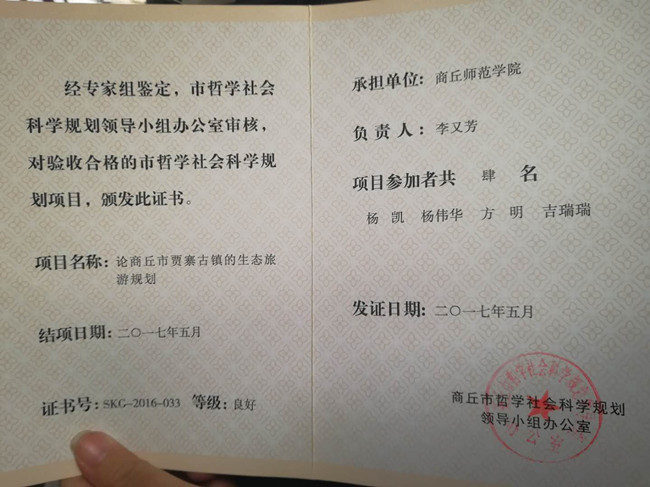 经专家组鉴定，市哲学社会
科学规划领导小组办公室审核，
对验收合格的市哲学社会科学规
划项目，颁发此证书。
项目名称：论商丘市贾寨古镇的生态旅
游规划
结项日期：二〇一七年五月
证书号：SKG-2016-033 等级：良好
承担单位：商丘师范学院
负责人：李又芳
项目参加者共 肆 名
杨 凯 杨伟华 方 明 吉瑞瑞
发证日期：二〇一七年五月
商丘市哲学社会科学规划
领导小组办公室